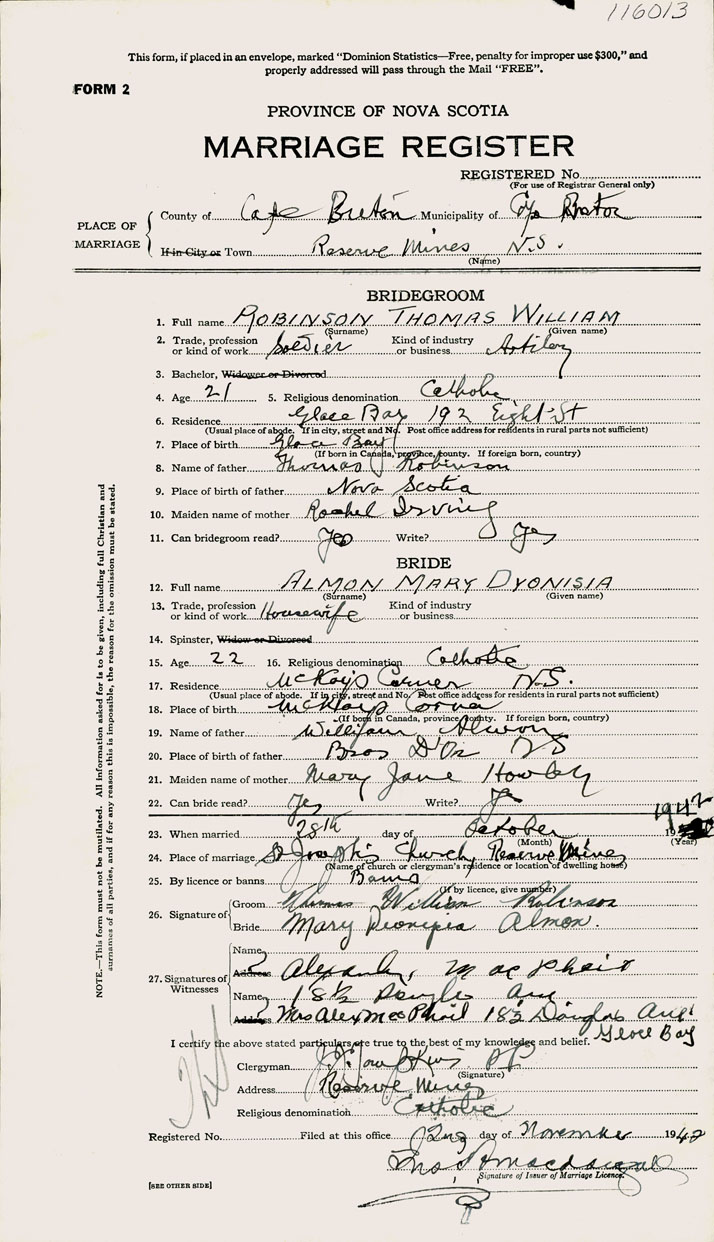 116013
This form, if placed in an envelope, marked “Dominion Statistics—Free, penalty for improper use $300,” and
properly addressed will pass through the Mail “FREE”.
FORM 2
PROVINCE OF NOVA SCOTIA
MARRIAGE REGISTER
REGISTERED No.
(For use of Registrar General only)
PLACE OF MARRIAGE
County of Cape Breton Municipality of Cape Breton
If in City or Town Reserve Mines N.S.
(Name)
BRIDEGROOM
1. Full name ROBINSON THOMAS WILLIAM
(Surname) (Given name)
2. Trade, profession or kind of work Soldier Kind of industry or business Artilery
3. Bachelor, Widower or Divorced
4. Age 21 5. Religious denomination Catholic
6. Residence Glace Bay 192 Eight St
(Usual place of abode. If in city, street and No. Post office address for residents in rural parts not sufficient)
7. Place of birth Glace Bay
(If born in Canada, province, county. If foreign born, country)
8. Name of father Thomas Robinson
9. Place of birth of father Nova Scotia
10. Maiden name of mother Rachel Irving
11. Can bridegroom read? Yes Write? Yes
BRIDE
12. Full name ALMON MARY DYONISIA
(Surname) (Given name)
13. Trade, profession or kind of work Housewife Kind of industry or business
14. Spinster, Widow or Divorced
15. Age 22 16. Religious denomination Catholic
17. Residence McKay's Corner N.S.
(Usual place of abode. If in city, street and No. Post office address for residents in rural parts not sufficient)
18. Place of birth McKays Corner
(If born in Canada, province, county. If foreign born, country)
19. Name of father William Almon
20. Place of birth of father Bras D'Or NS
21. Maiden name of mother Mary Jane Howley
22. Can bride read? Yes Write? Yes
1942
23. When married 28th day of October 19
(Month) (Year)
24. Place of marriage St Joseph's Church, Reserve Mines
(Name of church or clergyman's residence or location of dwelling house)
25. By licence or banns Banns
(If by licence, give number)
26. Signature of
Groom Thomas William Robinson
Bride Mary Dionisia Almon.
27. Signatures of Witnesses
Name
Address Alexander MacPhail
Name 182 Douglas Ave
Address Mrs Alex MacPhail 182 Douglas Ave
Glace Bay
I certify the above stated particulars are true to the best of my knowledge and belief.
Clergyman PP
(Signature)
Address Reserve Mines
Religious denomination Catholic
Registered No. Filed at this office 2nd day of November 1942
Signature of Issuer of Marriage Licence.
[SEE OTHER SIDE]
NOTE.—This form must not be mutilated. All information asked for is to be given, including full Christian and
surnames of all parties, and if for any reason this is impossible, the reason for the omission must be stated.